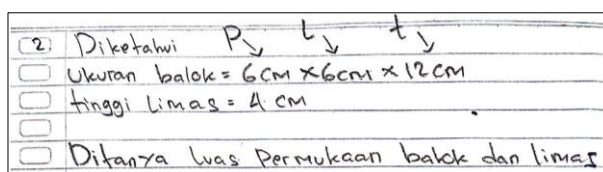 2 Diketahui P↘ L↘ t↘
Ukuran balok = 6 cm x 6 cm x 12 cm
tinggi Limas = 4 cm
Ditanya luas Permukaan balok dan limas